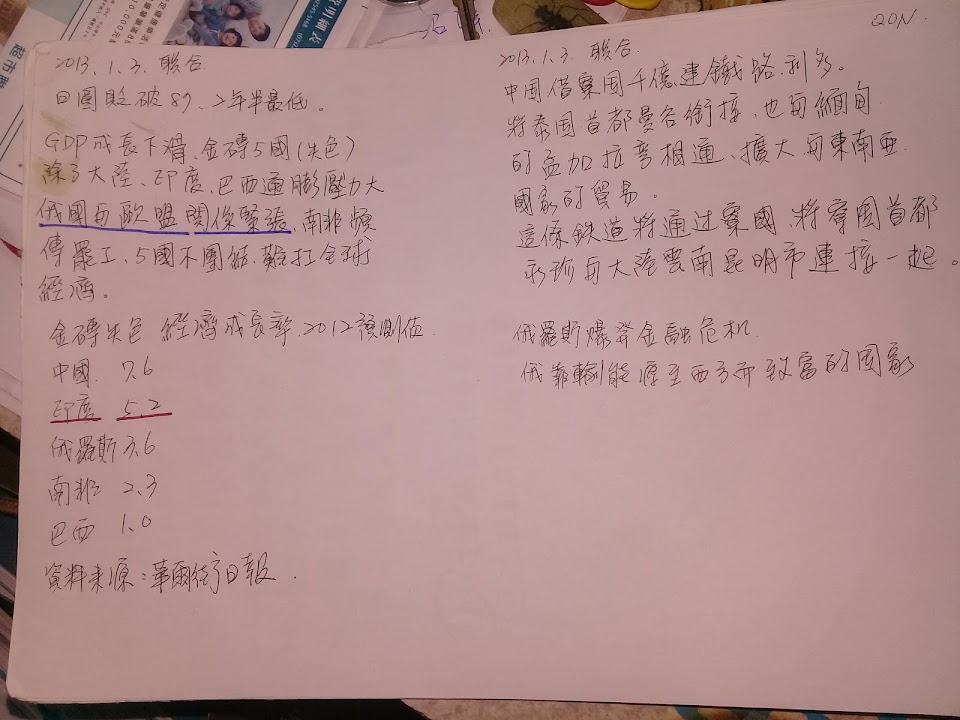 2013.1.3. 聯合.
日圓貶破87、2年半最低。
GDP成長下滑、金磚5國(失色)
除了大陸、印度、巴西通膨壓力大
俄國与歐盟関係緊張、南非頻
傳罷工、5國不團結、難扛全球
經濟。
金磚失色 經濟成長率、2012預測值.
中國. 7.6
印度 5.2
俄羅斯 3.6
南非 2.3
巴西 1.0
資料来源:華爾街日報.
20N.
2013.1.3. 聯合.
中国借寮国千億建鐵路、利多。
將泰国首都曼谷銜接、也与緬甸
的孟加拉弯相通、擴大与東南亚
國家的貿易。
這條鉄道将通过寮國、将寮国首都
永珍与大陸雲南昆明市連接一起。
俄羅斯爆発金融危机
俄靠輸能源至西方而致富的国家
超市
0,000元